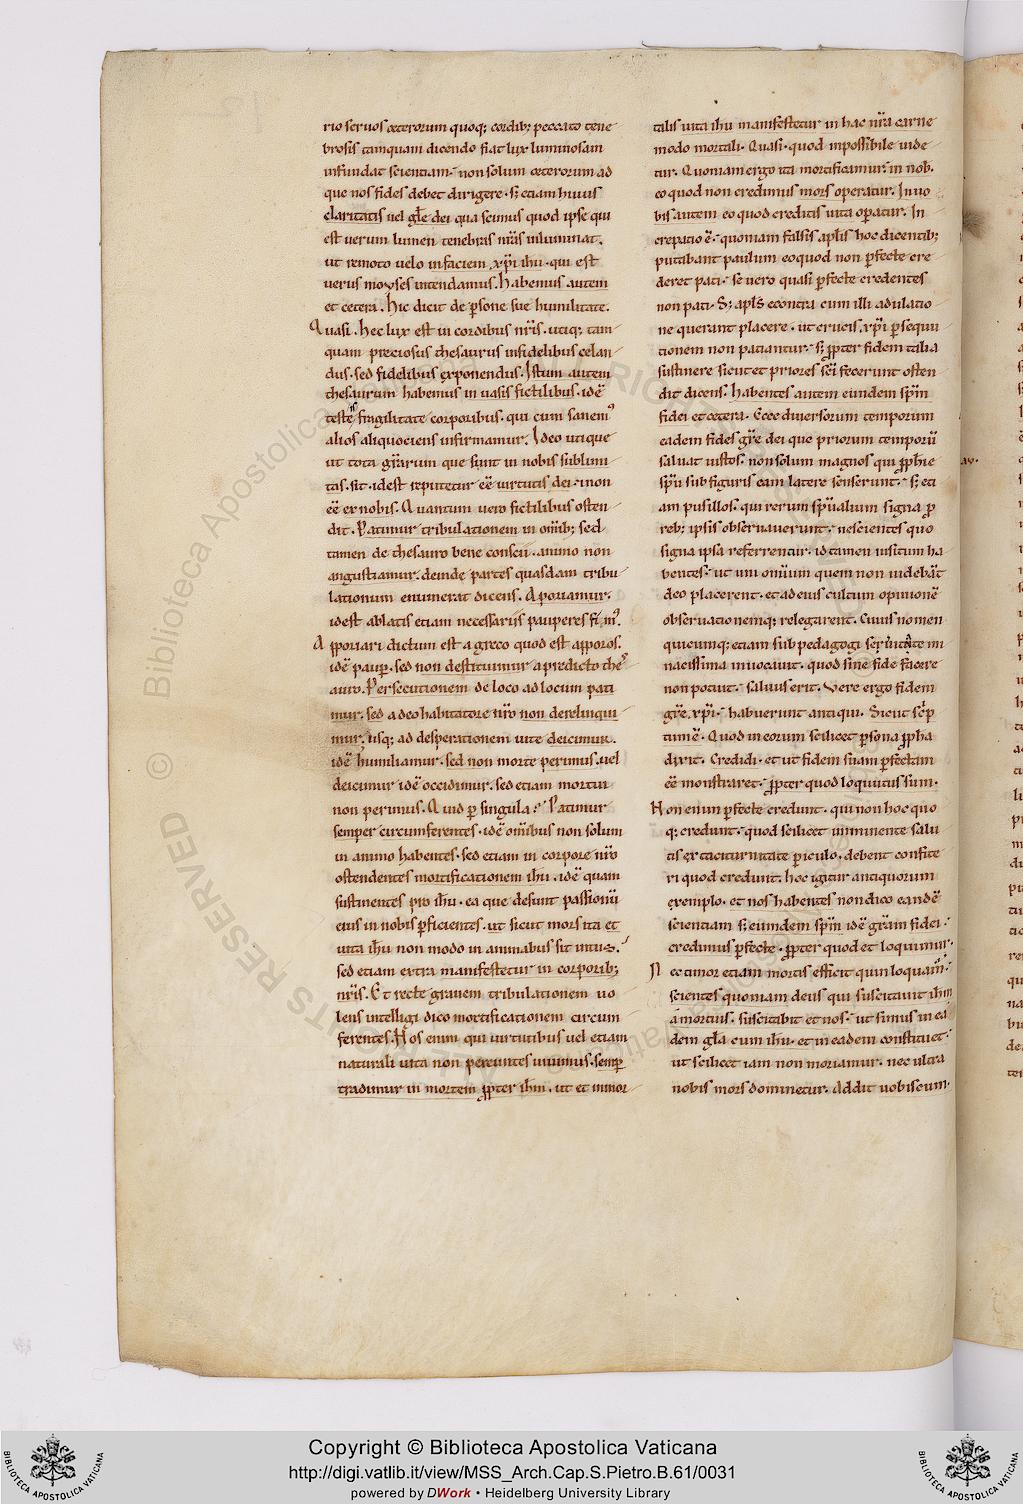 rio seruos ceterorum quoq; cordib; peccato tene
brosis tamquam dicendo fiat lux luminosam
infundat scientiam. non solum ceterorum ad
que nos fides debet dirigere. s; etiam huius
claritatis uel glẹ dei qua scimus quod ipse qui
est uerum lumen tenebras nr̄as inluminat.
ut remoto uelo in faciem xp̄i ihu. qui est
uerus moyses intendamus. habemus autem
et cetera. hic dicit de psone sue humilitate.
Quasi. hec lux est in cordibus nr̄is. utiq; tam
quam preciosus thesaurus infidelibus celan
dus. sed fidelibus exponendus. Istum autem
thesaurum habemus in uasis fictilibus. idē
teste fragilitate corporibus. qui cum sanem
alios aliquociens infirmamur. Ideo utique
ut tota gr̄arum que sunt in nobis sublimi
tas. sit. idest reputetur eē uirtutis dei. i non
eē ex nobis. Quantum uero fictilibus osten
dit. Patimur tribulationem in om̄ib; sed
tamen de thesauro bene conscii. animo non
angustiamur. deinde partes quasdam tribu
lationum enumerat dicens. Aporiamur.
idest ablatis etiam necessariis pauperes fim
Apporiari dictum est a greco quod est apporos.
idē paup. sed non destituimur a predicto the
auro. Persecutionem de loco ad locum pati
mur. sed a deo habitatore nr̄o non derelinqui
mur. usq; ad desperationem uite deicimur.
idē humiliamur. sed non morte perimus. uel
deicimur idē occidimur. sed etiam mortui
non perimus. Quid p singula? Patimur
semper circumferentes. idē om̄ibus non solum
in animo habentes. sed etiam in corpore nr̄o
ostendentes mortificationem ihu. idē quam
sustinentes pro ihu. ea que desunt passionū
eius in nobis pficientes. ut sicut mors ita et
uita ihu non modo in animabus sit intus.
sed etiam extra manifestetur in corporib;
nr̄is. Et recte grauem tribulationem uo
lens intelligi dico mortificationem circum
ferentes. Nos enim qui uirtutibus uel etiam
naturali uita non pereuntes uiuimus. semp
tradimur in mortem ppter ihm. ut et inmor
talis uita ihu manifestetur in hac nr̄a carne
modo mortali. Quasi. quod inpossibile uide
tur. Quoniam ergo ita mortificamur. in nob.
eo quod non credimus mors operatur. In uo
bis autem eo quod creditis uita opatur. In
crepatio ē. quoniam falsis aplis hoc dicentib;
putabant paulum eo quod non pfecte cre
deret pati. se uero quasi pfecte credentes
non pati. S; apls econtra cum illi adulatio
ne querant placere. ut crucis xp̄i psequu
tionem non patiantur. s; ppter fidem talia
sustinere sicut et priores sci fecerunt osten
dit dicens. habentes autem eundem spm
fidei et cetera. Ecce diuersorum temporum
eadem fides gr̄e dei que priorum temporū
saluat iustos. non solum magnos qui pphie
spū sub figuris eam latere senserunt. s; eti
am pusillos. qui rerum spūalium signa p
reb; ipsis obseruauerunt. nescientes quo
signa ipsa referrentur. id tamen insitum ha
bentes. ut uni om̄ium quem non uidebāt
deo placerent. et ad eius cultum opinionē
obseruationemq; relegarent. Cuius nomen
quicumq; etiam sub pedagogi seruitute mi
nacissima inuocauit. quod sine fide facere
non potuit. saluus erit. Vere ergo fidem
gr̄e xp̄i. habuerunt antiqui. Sicut scp
tum ē. Quod in eorum scilicet psona ppha
dixit. Credidi. et ut fidem suam pfectam
eē monstraret. ppter quod loquutus sum.
Non enim pfecte credunt. qui non hoc quo
q; credunt. quod scilicet imminente salu
tis ex taciturnitate piculo. debent confite
ri quod credunt. hoc igitur antiquorum
exemplo. et nos habentes non dico eandē
scientiam s; eumdem spm̄ idē gr̄am fidei.
credimus pfecte. ppter quod et loquimur.
Nec timor etiam mortis efficit quin loquam.
scientes quoniam deus qui suscitauit ihm
a mortuis. suscitabit et nos. ut simus in ea
dem gla cum ihu. et in eadem constituet.
ut scilicet iam non moriamur. nec ultra
nobis mors dominetur. Addit uobiscum.
Copyright © Biblioteca Apostolica Vaticana
http://digi.vatlib.it/view/MSS_Arch.Cap.S.Pietro.B.61/0031
powered by DWork • Heidelberg University Library